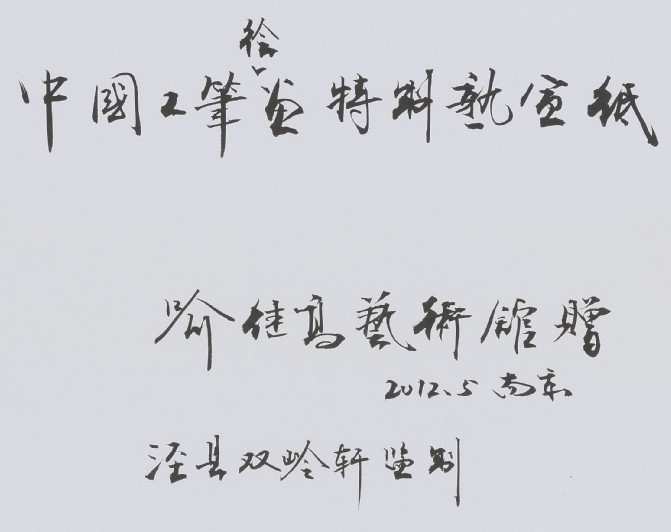 中國工筆绘画特料熟宣紙
喻继高藝術館贈
2012.5 南京
泾县双岭轩监制